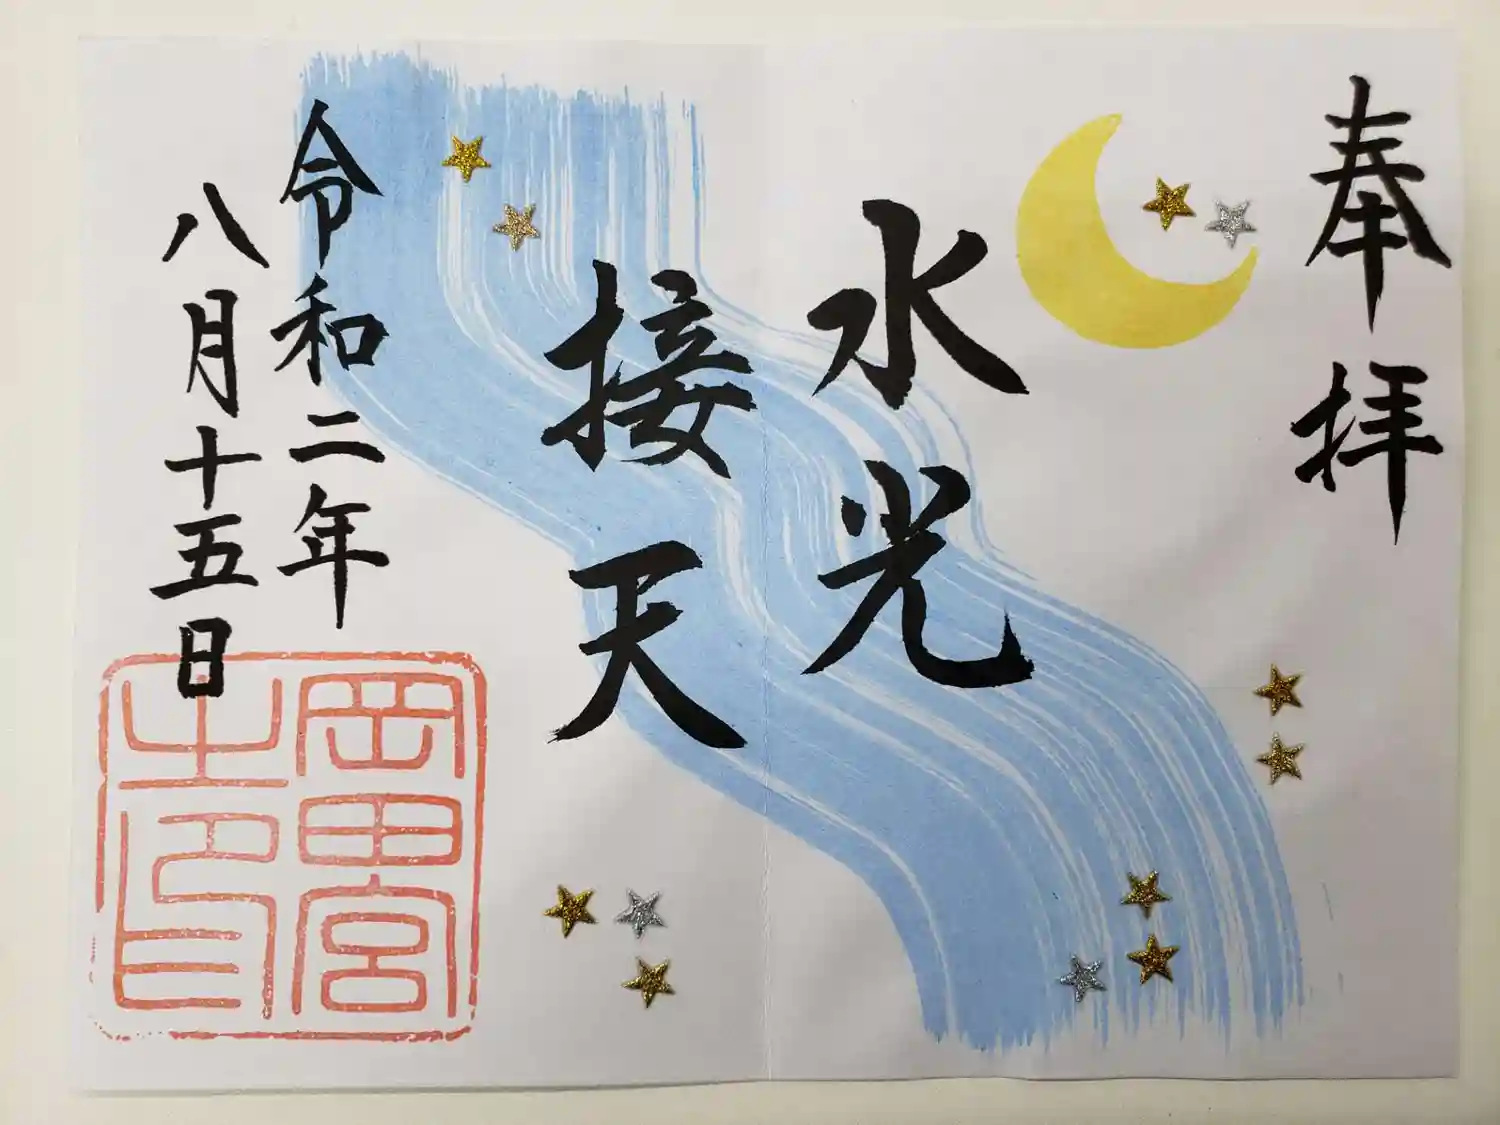 奉拝
水光
接天
令和二年
八月十五日
岡田宮
之印